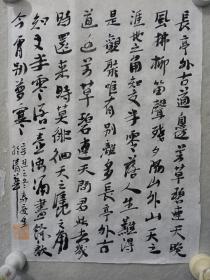 長亭外古道邊芳草碧連天晚
風拂柳笛聲殘夕陽山外山天之
涯地之角知交半零落人生難得
是歡聚唯有別離多長亭外古
道邊芳草碧連天問君此去幾
時還来時莫徘徊天之涯地之角
知交半零落一壺濁酒盡餘歡
今宵別夢寒
辛丑之冬